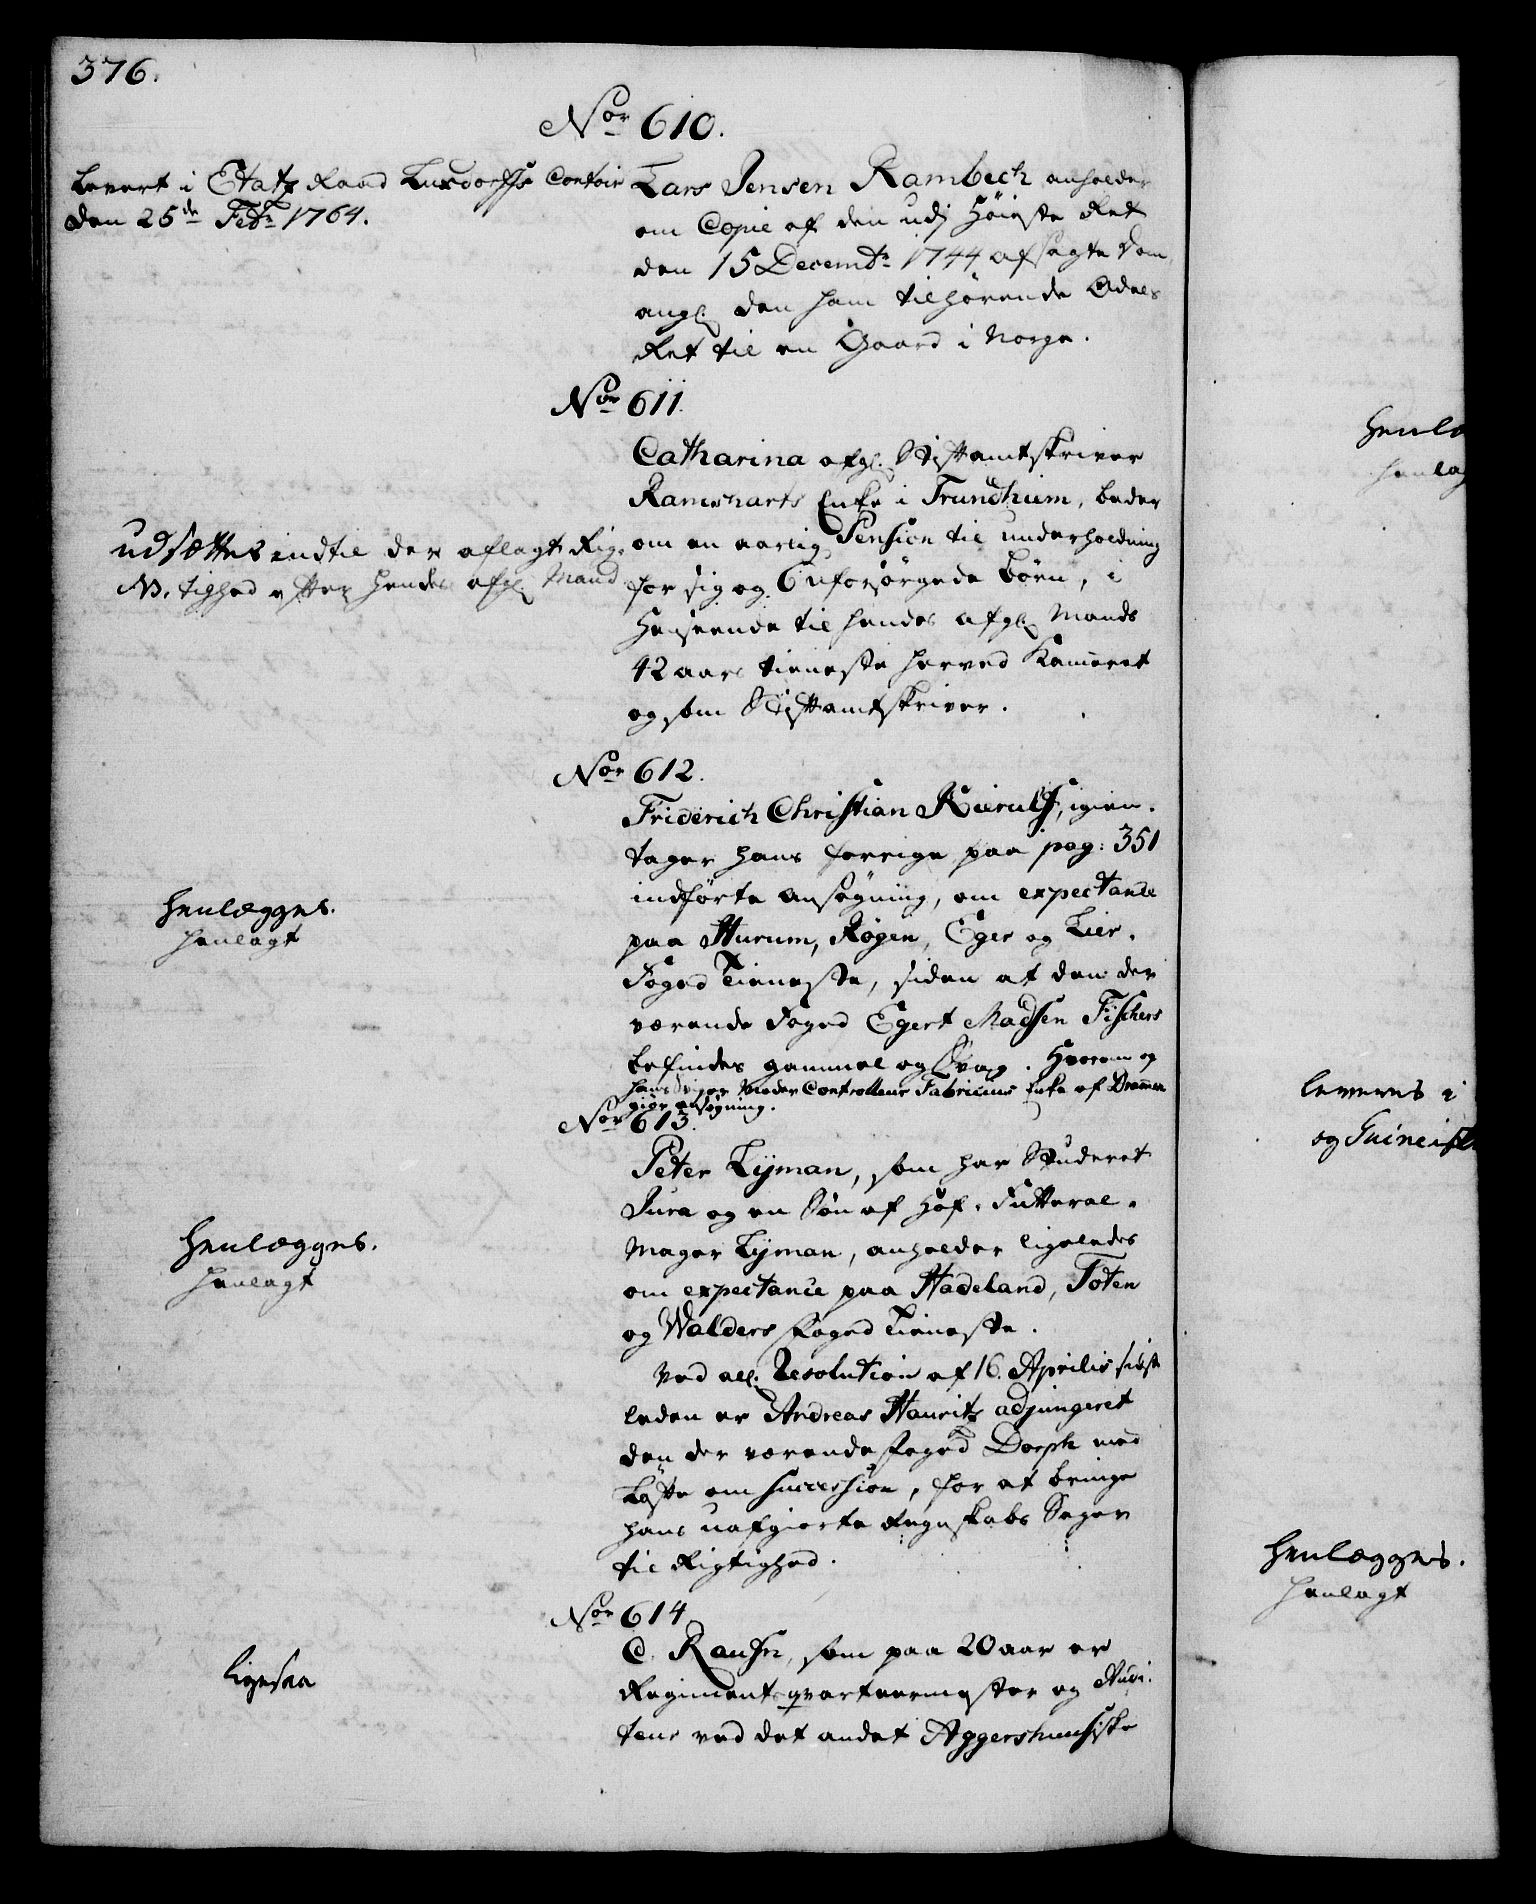 376.
Nor 610.
Levert i Etatz Raad Luxdorffs Contoir
den 25de Febr 1764.
Lars Jensen Rambech anholder
om Copie af den udj Höieste Ret
den 15 Decembr 1744 afsagte Dom
angl den ham tilhörende Odels
Ret til en Gaard i Norge.
Nor 611.
Catharina afgl. Stiftamtskriver
Ramsharts Enke i Trundhiem, beder
om en aarlig Pension til underholdning
for sig og 6 uforsörgede Börn, i
Henseende til hendes afgl Mands
42 aars tieneste herved Kameret
og som Stiftamtskriver.
udsættes indtil der aflagt Rig-
NB. tighed efter hendes afgl Mand
Nor 612.
Friderich Christian Kierulf, igien-
tager hans forrige paa pag: 351
indförte ansögning, om expectance
paa Hurum, Rögen, Eger og Lier-
Foged Tieneste, siden at den der
værende Foged Egert Madsen Fischers
befindes gammel og Svag. Hvorom og
hans Sviger Moder Controlleur Fabricius Enke af Drammen
giör ansögning.
Henlægges.
henlagt
Nor 613.
Peter Lÿman, som har Studeret
Jura og en Sön af Hof-Futteral-
Mager Lÿman, anholder ligeledes
om expectance paa Hadeland, Toten
og Walders foged Tieneste.
Ved all. Resolution af 16. Aprilis sidst
leden er Andreas Hauritz adjungeret
den der værende foged Dorph med
Löfte om Succession, for at bringe
hans uafgiorte Regnskabs Sager
til Rigtighed.
Henlægges.
henlagt
Nor 614
C. Rausn, som paa 20 aar er
Regimentsqvarteermester og Audi-
teur ved det andet Aggershuusiske
ligesaa
henlæ
henlag
leveres i
og Guineisk
Henlægges.
henlagt